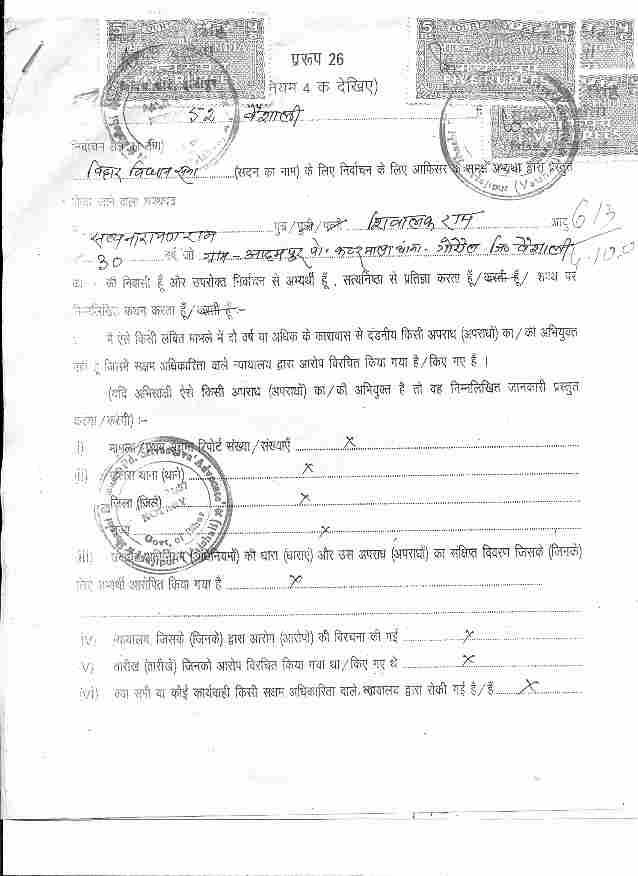 प्ररूप 26
नियम 4 क देखिए)
52 वैशाली
बिहार विधान सभा (सदन का नाम) के लिए निर्वाचन के लिए आफिसर के समक्ष अभ्यर्थी द्वारा प्रस्तुत
किया जाने वाला शपथपत्र
सत्यनारायण राम पुत्र/पुत्री/पत्नी शिवालक राम आयु
30 वर्ष, जो ग्राम- आदमपुर पो॰ कटरमाला थाना- गोरौल जि॰ वैशाली
का निवासी हूँ और उपरोक्त निर्वाचन से अभ्यर्थी हूँ , सत्यनिष्ठा से प्रतिज्ञा करता हूँ/करती हूँ/ शपथ पर
निम्नलिखित कथन करता हूँ/करती हूँ:-
मैं ऐसे किसी लंबित मामले में दो वर्ष या अधिक के कारावास से दंडनीय किसी अपराध (अपराधों) का/की अभियुक्त
नहीं हूँ जिसमें सक्षम अधिकारिता वाले न्यायालय द्वारा आरोप विरचित किया गया है/किए गए हैं ।
(यदि अभिसाक्षी ऐसे किसी अपराध (अपराधों) का/की अभियुक्त है तो वह निम्नलिखित जानकारी प्रस्तुत
करेगा/करेगी) :-
i) मामला/प्रथम सूचना रिपोर्ट संख्या/संख्याएँ x
ii) पुलिस थाना (थाने) x
जिला (जिले) x
राज्य x
iii) संबंधित अधिनियम (अधिनियमों) की धारा (धाराएं) और उस अपराध (अपराधों) का संक्षिप्त विवरण जिसके (जिनके)
लिए अभ्यर्थी आरोपित किया गया है x
iv) न्यायालय, जिसके (जिनके) द्वारा आरोप (आरोपों) की विरचना की गई x
v) तारीख (तारीखें) जिनको आरोप विरचित किया गया था/किए गए थे x
(vi) क्या सभी या कोई कार्यवाही किसी सक्षम अधिकारिता वाले न्यायालय द्वारा रोकी गई है/हैं x